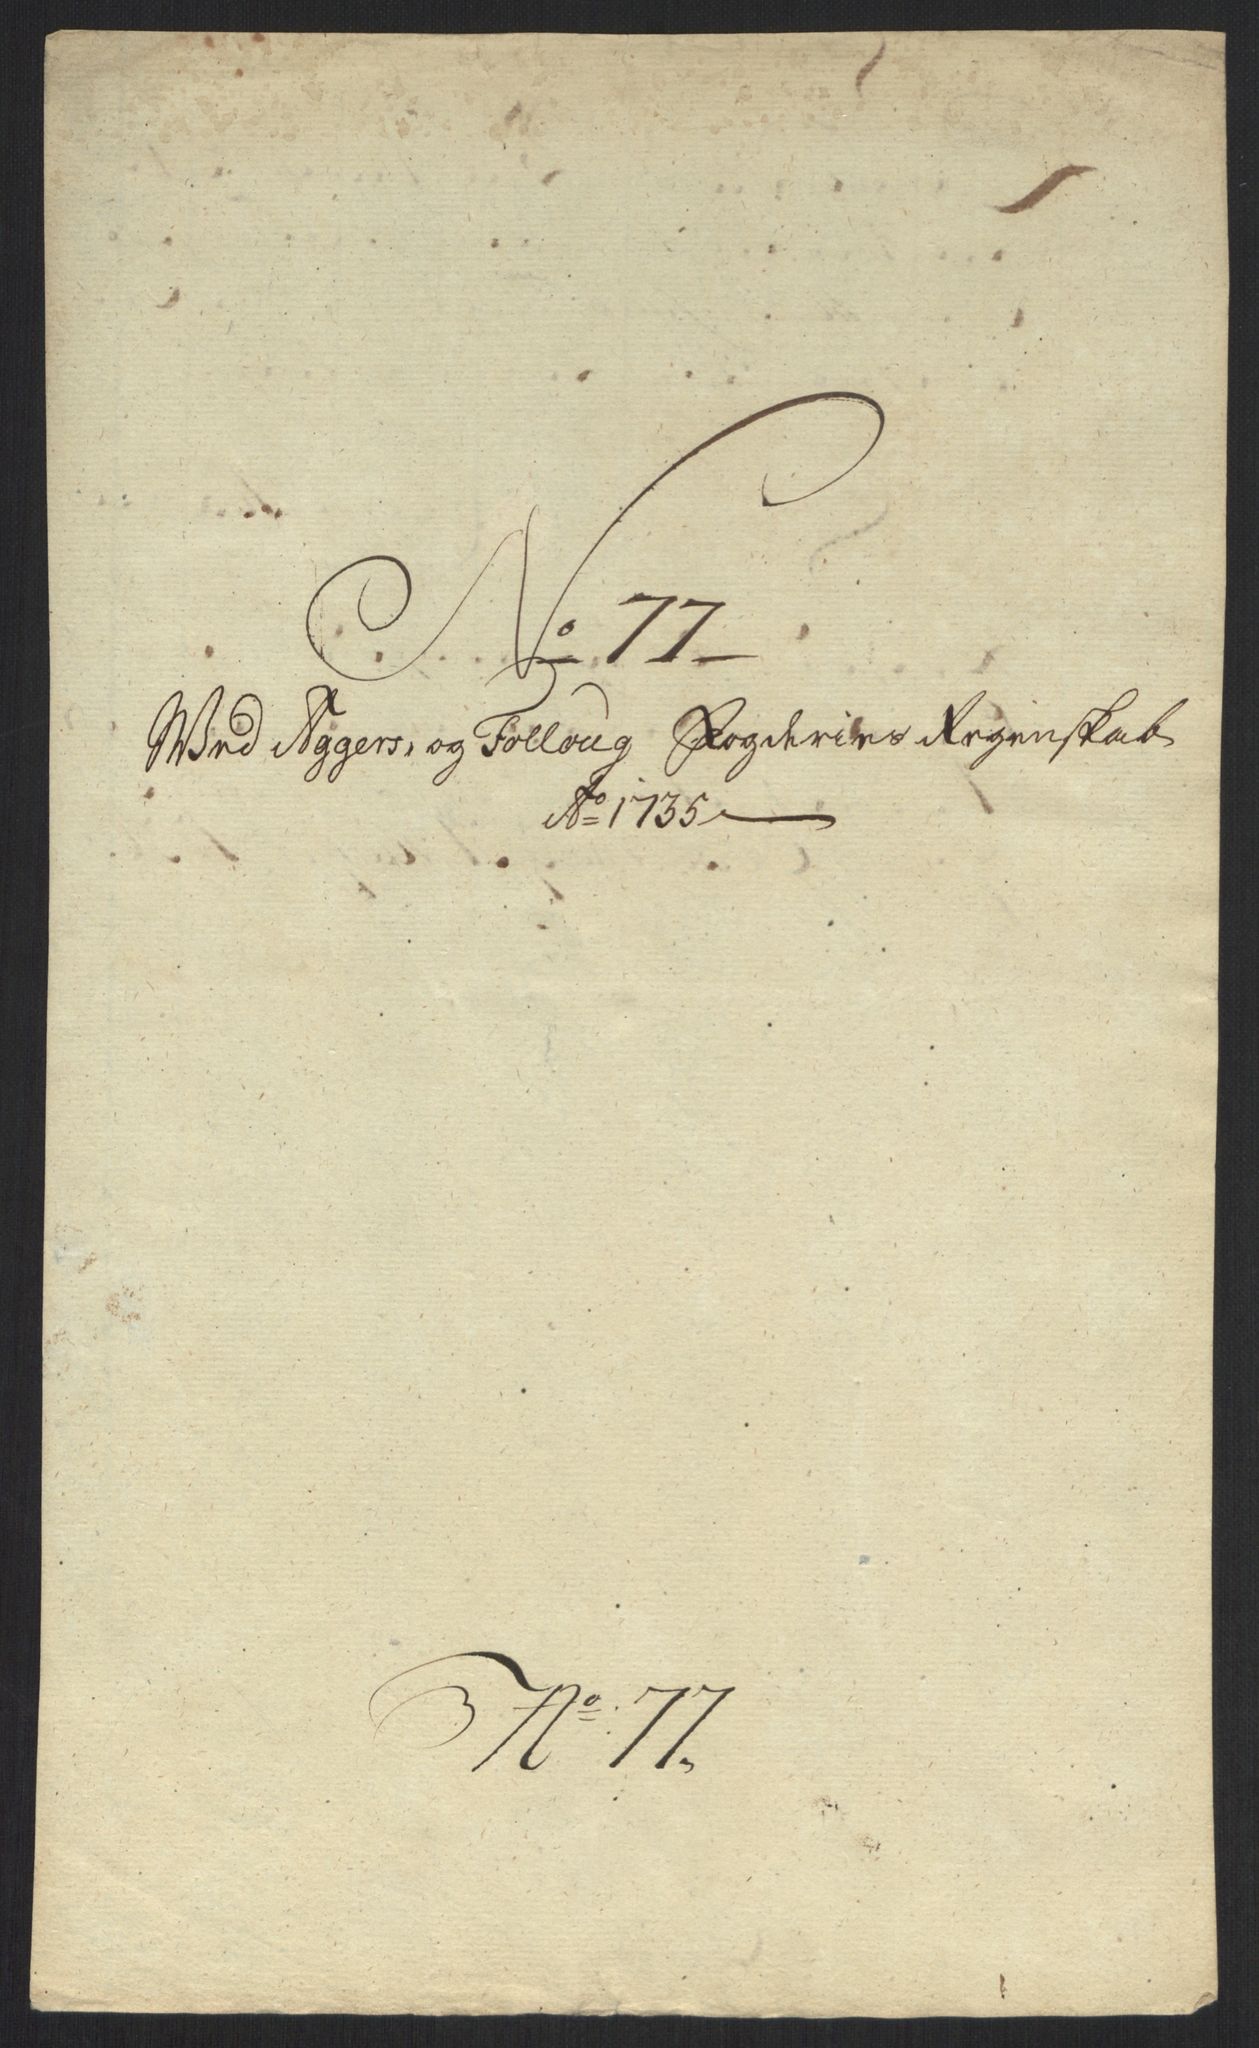 No 77
Wed Aggers, og Folloug Fogderies Regenskab
Ao 1735
No 77.